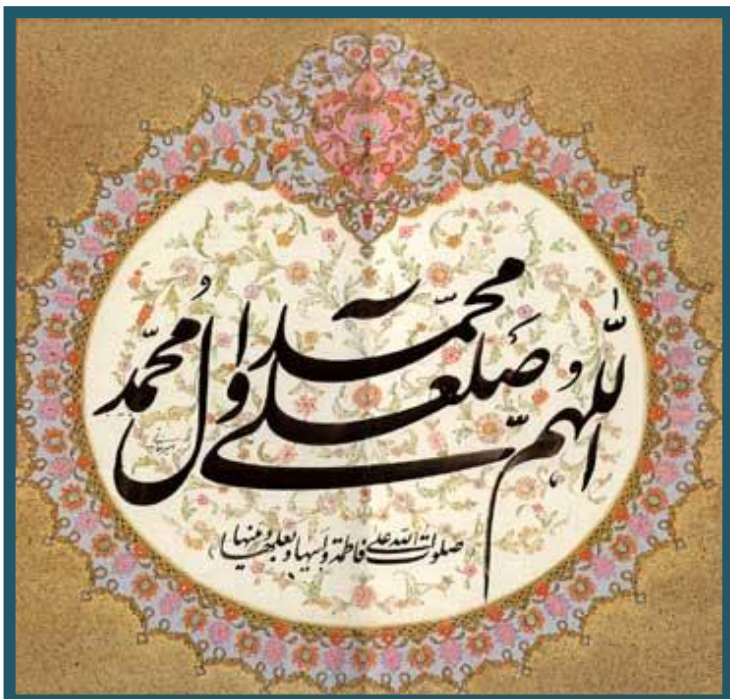 اللّٰهُمَّ صَلِّ عَلٰی مُحَمَّدٍ وَآلِ مُحَمَّد
صلوات الله علی فاطمة وابیها وبعلها وبنیها